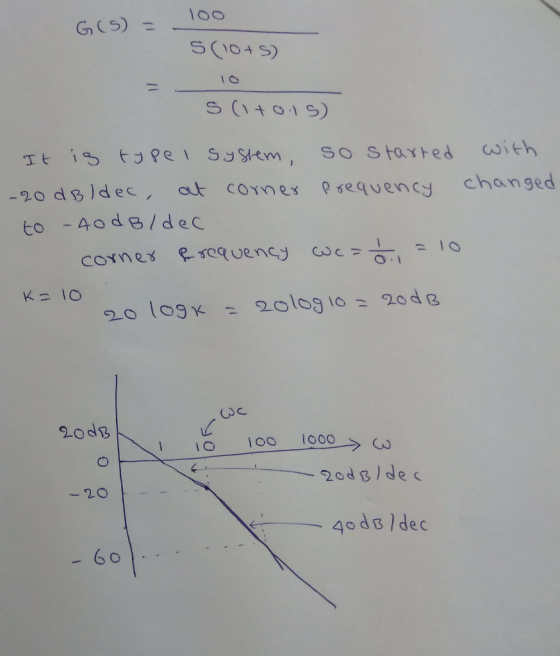 G(S) = 100 / S(10+S)
= 10 / S(1+0.1S)
It is type 1 system, so started with
-20dB/dec, at corner frequency changed
to -40dB/dec
corner frequency ωc = 1/0.1 = 10
K = 10 20 logK = 20log10 = 20dB
ωc
20dB 1 10 100 1000 ω
0
20dB/dec
-20
40dB/dec
-60